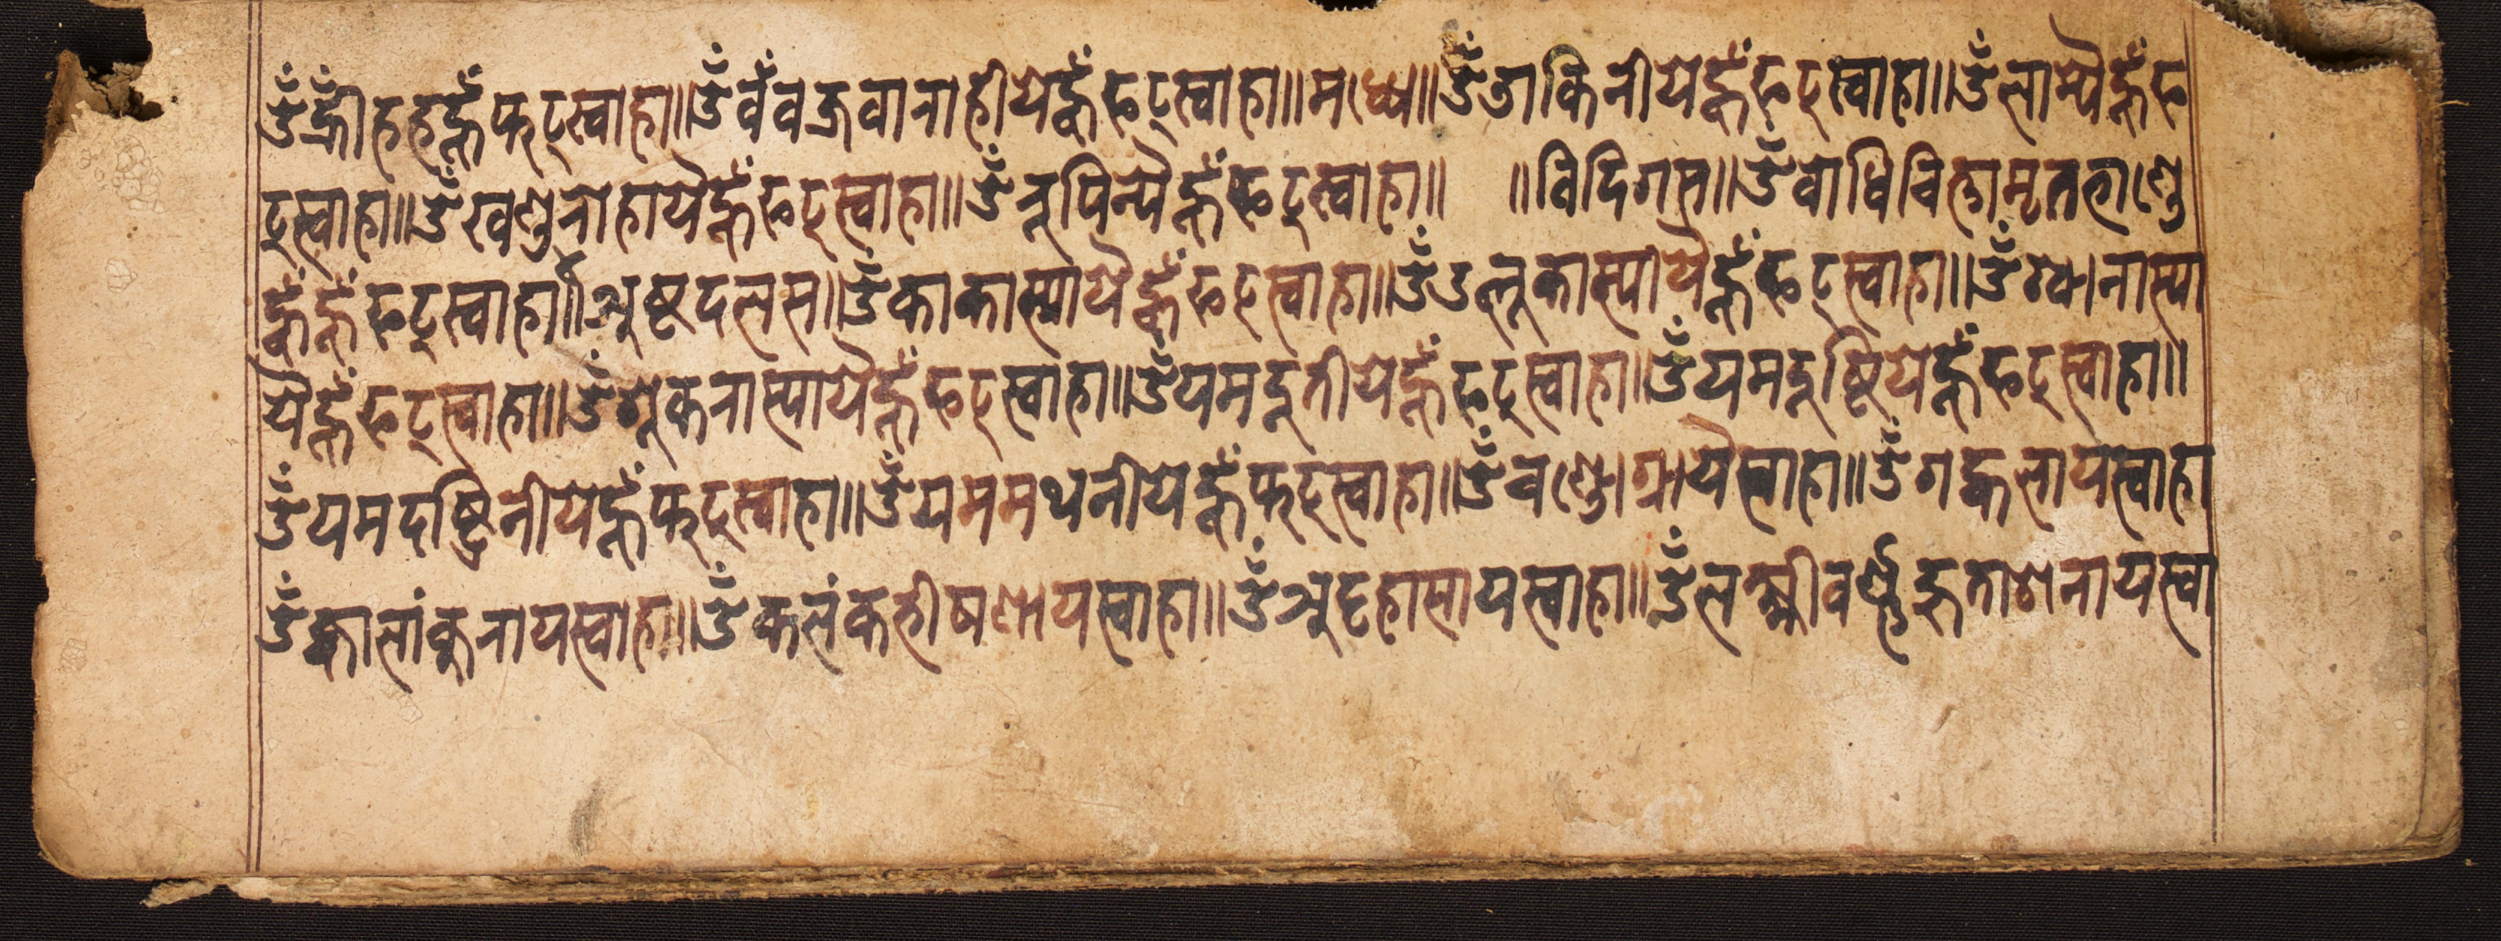 ॐह्रीहहहूँफट्स्वाहा॥ॐवँवज्रवानाहीयेहूँफट्स्वाहा॥मध्ये॥ॐडाकिनीयेहूँफट्स्वाहा॥ॐलाम्यैहूँफ
ट्स्वाहा॥ॐखण्डनोहायैहूँफट्स्वाहा॥ॐनूपिन्यैहूँफट्स्वाहा॥ ॥विदिगस॥ॐबोधिचित्तामृतभाण्डे
हूँहूँफट्स्वाहा॥अष्टदलस॥ॐकाकास्यायैहूँफट्स्वाहा॥ॐउलूकास्यायैहूँफट्स्वाहा॥ॐश्वानास्या
यैहूँफट्स्वाहा॥ॐशूकनास्यायैहूँफट्स्वाहा॥ॐयमदूतीयेहूँफट्स्वाहा॥ॐयमदूष्टियेहूँफट्स्वाहा॥
ॐयमदष्ट्रिनीयेहूँफट्स्वाहा॥ॐयममथनीयेहूँफट्स्वाहा॥ॐचण्डोग्रायैस्वाहा॥ॐगह्वलायस्वाहा
ॐज्वालांकुनायस्वाहा॥ॐकलंकभीषणायस्वाहा॥ॐअट्टहासायस्वाहा॥ॐलक्ष्मीवर्ण्णहुताशनायस्वा